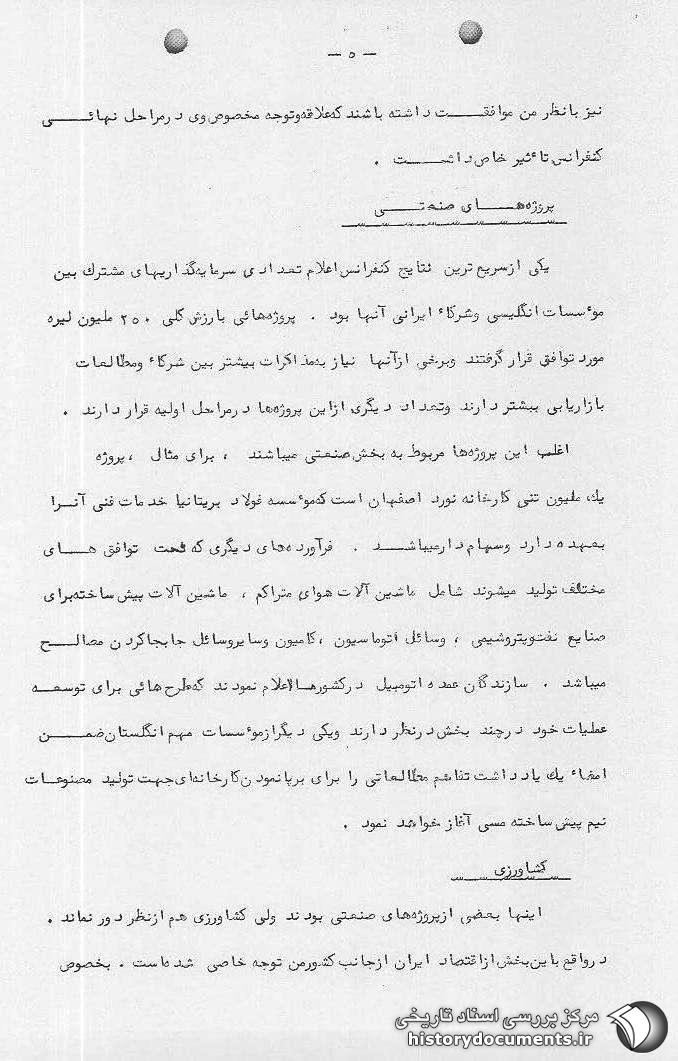 — ۵ —
نیز با نظر من موافقت داشته باشند که علاقه و توجه مخصوص وی در مراحل نهائی
کنفرانس تاٴثیر خاص داشت .
پروژه‌های صنعتی
یکی از سریع ترین نتایج کنفرانس اعلام تعدادی سرمایه‌گذاریهای مشترک بین
موٴسسات انگلیسی و شرکاٴ ایرانی آنها بود . پروژه‌هائی با ارزش کلی ۲۵۰ ملیون لیره
مورد توافق قرار گرفتند و برخی از آنها نیاز به مذاکرات بیشتر بین شرکاٴ و مطالعات
بازاریابی بیشتر دارند و تعداد دیگری از این پروژه‌ها در مراحل اولیه قرار دارند .
اغلب این پروژه‌ها مربوط به بخش صنعتی میباشند ، برای مثال ، پروژه
یک ملیون تنی کارخانه نورد اصفهان است که موٴسسه فولاد بریتانیا خدمات فنی آنرا
بعهده دارد و سهام دار میباشد . فرآورده‌های دیگری که تحت توافق های
مختلف تولید میشوند شامل ماشین آلات هوای متراکم ، ماشین آلات پیش ساخته برای
صنایع نفت و پتروشیمی ، وسائل اتوماسیون ، کامیون و سایر وسائل جابجا کردن مصالح
میباشد . سازندگان عمده اتومبیل در کشور ما اعلام نمودند که طرح هائی برای توسعه
عملیات خود در چند بخش در نظر دارند و یکی دیگر از موٴسسات مهم انگلستان ضمن
امضاٴ یک یادداشت تفاهم مطالعاتی را برای برپا نمودن کارخانه‌ای جهت تولید مصنوعات
نیم پیش ساخته مسی آغاز خواهد نمود .
کشاورزی
اینها بعضی از پروژه‌های صنعتی بودند ولی کشاورزی هم از نظر دور نماند .
در واقع باین بخش از اقتصاد ایران از جانب کشور من توجه خاصی شده است . بخصوص
مرکز بررسی اسناد تاریخی
historydocuments.ir